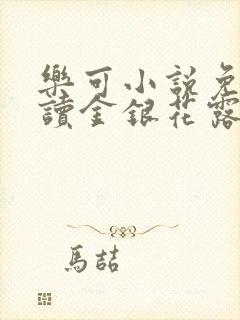 樂可小說免
讀金銀花露
馬喆